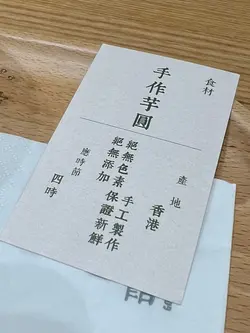 食材
手作芋圓
產地
香港
絕無色素 手工製作
絕無添加 保證新鮮
應時節
四時